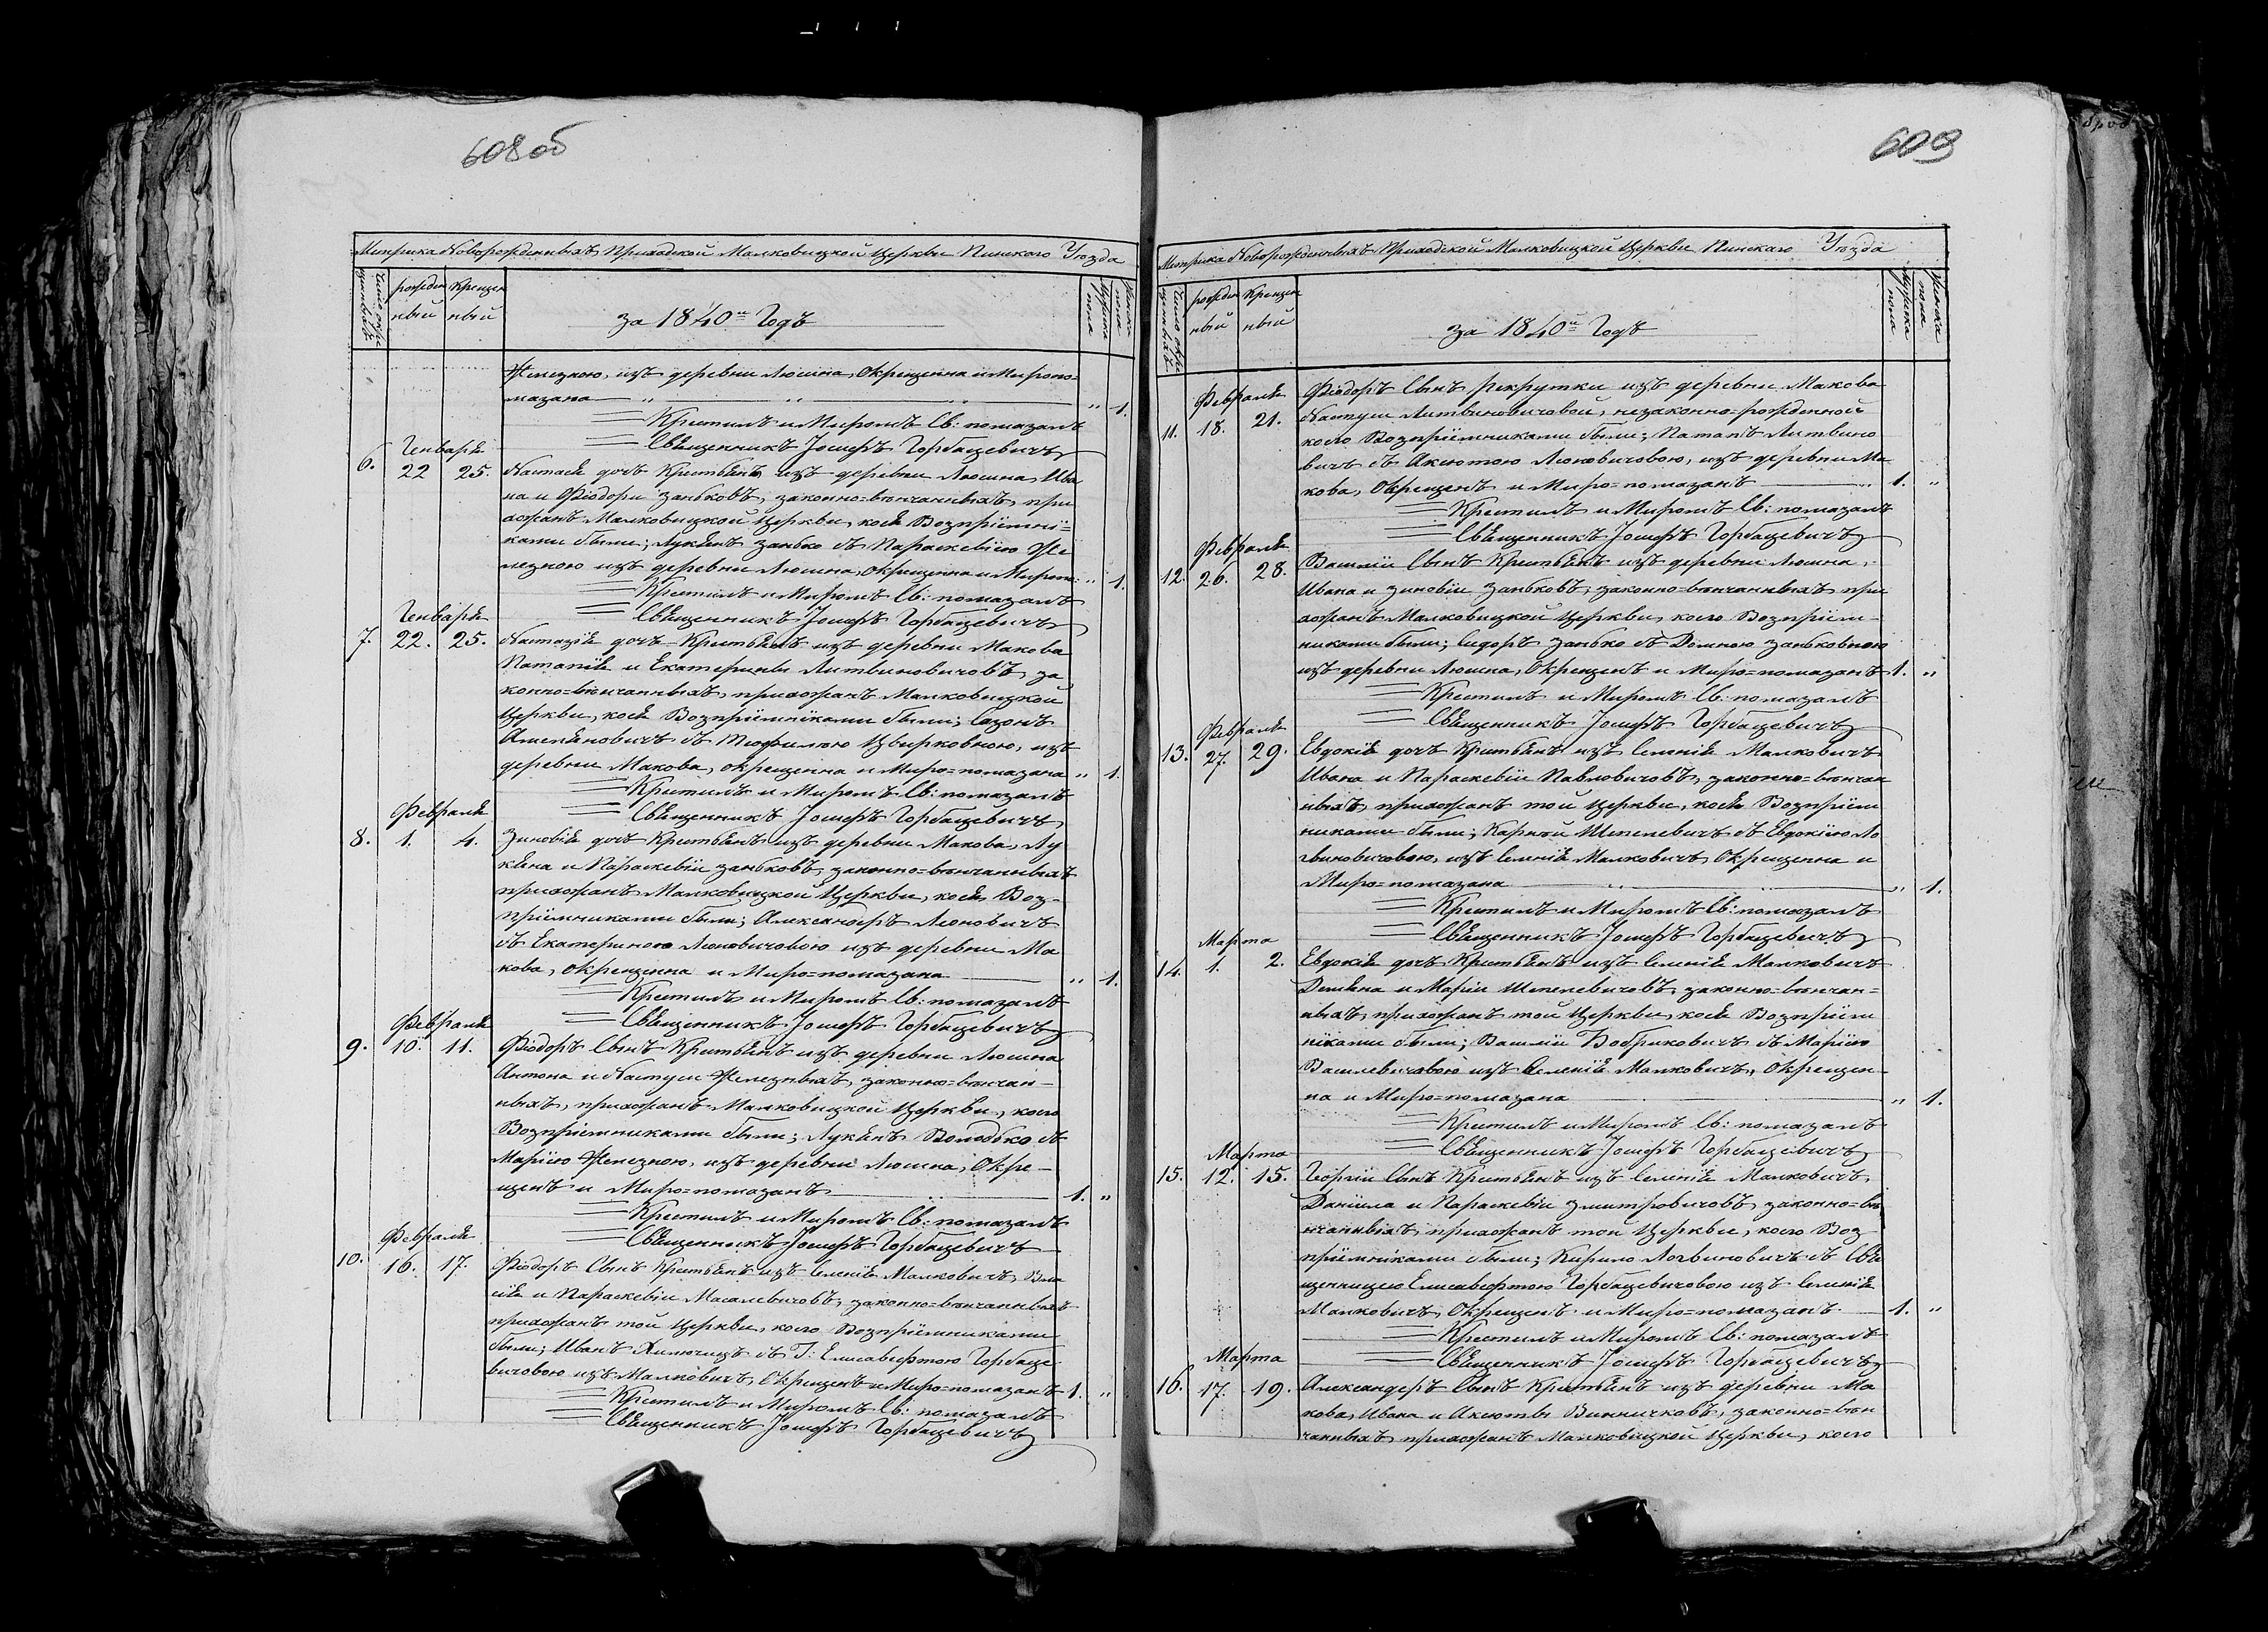 608об
Метрика Новорожденныхъ Приходской Малковицкой Церкви Пинскаго Уѣзда
рожден
ный
Крещен
ный
за 1840й Годъ
мужеска
пола
женска
пола
Железною, изъ деревни Люсина, Окрещенна и Миропо=
мазана " " " " 1.
Крестилъ и Миромъ Св: помазалъ
Священникъ Іосифъ Горбацевичъ
Генваря
6. 22 25. Настася дочь Крестьянъ изъ деревни Люсина, Ива
на и Ѳіодоры Занбковъ, законно=вѣнчанныхъ, при
хожанъ Малковицкой Церкви, коея Воспріемни=
ками были; Лукьянъ Занбко съ Параскевіею Же
лезною изъ деревни Люсина, Окрещенна и Миропо: " 1.
Крестилъ и Миромъ Св: помазалъ
Священникъ Іосифъ Горбацевичъ
Генваря
7. 22. 25. Настазія дочь Крестьянъ изъ деревни Макова
Патапія и Екатерины Литвиновичовъ, за
конно=вѣнчанныхъ, прихожанъ Малковицкой
Церкви, коея Воспріемниками были; Сазонъ
съ Теофилею Цвирковною, изъ
деревни Макова, окрещенна и Миро=помазана " 1.
Крестилъ и Миромъ Св: помазалъ
Священникъ Іосифъ Горбацевичъ
Февраля
8. 1. 4. Зиновія дочь Крестьянъ изъ деревни Макова, Лу
кьяна и Параскевіи Занбковъ, законно=вѣнчанныхъ
прихожанъ Малковицкой Церкви, коея Вос=
пріемниками были; Александеръ Леоновичъ
съ Екатериною Леоновичовою изъ деревни Ма
кова, Окрещенна и Миро=помазана " 1.
Крестилъ и Миромъ Св: помазалъ
Священникъ Іосифъ Горбацевичъ
Февраля
9. 10. 11. Ѳіодоръ Сынъ Крестьянъ изъ деревни Люсина
Антона и Настуси Железныхъ, законно=вѣнчан=
ныхъ, прихожанъ Малковицкой Церкви, коего
Воспріемниками были; Лукьянъ Володько съ
Маріею Железною, изъ деревни Люсина, Окре=
щенъ и Миро=помазанъ 1. "
Крестилъ и Миромъ Св: помазалъ
Священникъ Іосифъ Горбацевичъ
Февраля
10. 16. 17. Ѳіодоръ Сынъ Крестьянъ изъ Селенія Малковичъ, Вла
сія и Параскевіи Масалевичовъ, законно=вѣнчанныхъ
прихожанъ той Церкви, коего Воспріемниками
были; Иванъ съ Г: Елисаветою Горбаце
вичовою изъ Малковичъ, Окрещенъ и Миро=помазанъ 1. "
Крестилъ и Миромъ Св: помазалъ
Священникъ Іосифъ Горбацевичъ
609
Метрика Новорожденныхъ Приходской Малковицкой Церкви Пинскаго Уѣзда
рожден
ный
Крещен
ный
за 1840й Годъ
мужеска
пола
женска
пола
Февраля
11. 18. 21. Ѳіодоръ Сынъ рекрутки изъ деревни Макова
Настуси Литвиновичовой, незаконно=рожденной
коего Воспріемниками были; Патапъ Литвино
вичъ съ Аксютою Леоновичовою, изъ деревни Ма
кова, Окрещенъ и Миро=помазанъ 1. "
Крестилъ и Миромъ Св: помазалъ
Священникъ Іосифъ Горбацевичъ
Февраля
12. 26. 28. Василій Сынъ Крестьянъ изъ деревни Люсина,
Ивана и Зиновіи Занбковъ, законно=вѣнчанныхъ при
хожанъ Малковицкой Церкви, коего Воспріем=
никами были; Сидоръ Занбко съ Домною Занбковною
изъ деревни Люсина, Окрещенъ и Миро=помазанъ 1. "
Крестилъ и Миромъ Св: помазалъ
Священникъ Іосифъ Горбацевичъ
Февраля
13. 27. 29. Евдокія дочь Крестьянъ изъ Селенія Малковичъ
Ивана и Параскевіи Павловичовъ, законно=вѣнчан
ныхъ прихожанъ той Церкви, коея Воспріем
никами были; Карпъ Шепелевичъ съ Евдокіею Ло
гвиновичовою, изъ Селенія Малковичъ, Окрещенна и
Миро=помазана " 1.
Крестилъ и Миромъ Св: помазалъ
Священникъ Іосифъ Горбацевичъ
Марта
14. 1. 2. Евдокія дочь Крестьянъ изъ Селенія Малковичъ
Демьяна и Маріи Шепелевичовъ, законно=вѣнчан=
ныхъ, прихожанъ той Церкви, коея Воспріем
никами были; Василій Бобриковичъ съ Маріею
Василевичовою изъ Селенія Малковичъ, Окрещен
на и Миро=помазана " 1.
Крестилъ и Миромъ Св: помазалъ
Священникъ Іосифъ Горбацевичъ
Марта
15. 12. 15. Георгій Сынъ Крестьянъ изъ Селенія Малковичъ,
Даніила и Параскевіи Змитровичовъ, законно=вѣ
нчанныхъ, прихожанъ той Церкви, коего Вос
пріемниками были; Кирило Логвиновичъ съ Свя
щенницею Елисаветою Горбацевичовою изъ Селенія
Малковичъ, Окрещенъ и Миро=помазанъ 1. "
Крестилъ и Миромъ Св: помазалъ
Священникъ Іосифъ Горбацевичъ
Марта
16. 17. 19. Александеръ Сынъ Крестьянъ изъ деревни Ма
кова, Ивана и Аксюты Винничковъ, законно=вѣн
чанныхъ, прихожанъ Малковицкой Церкви, коего